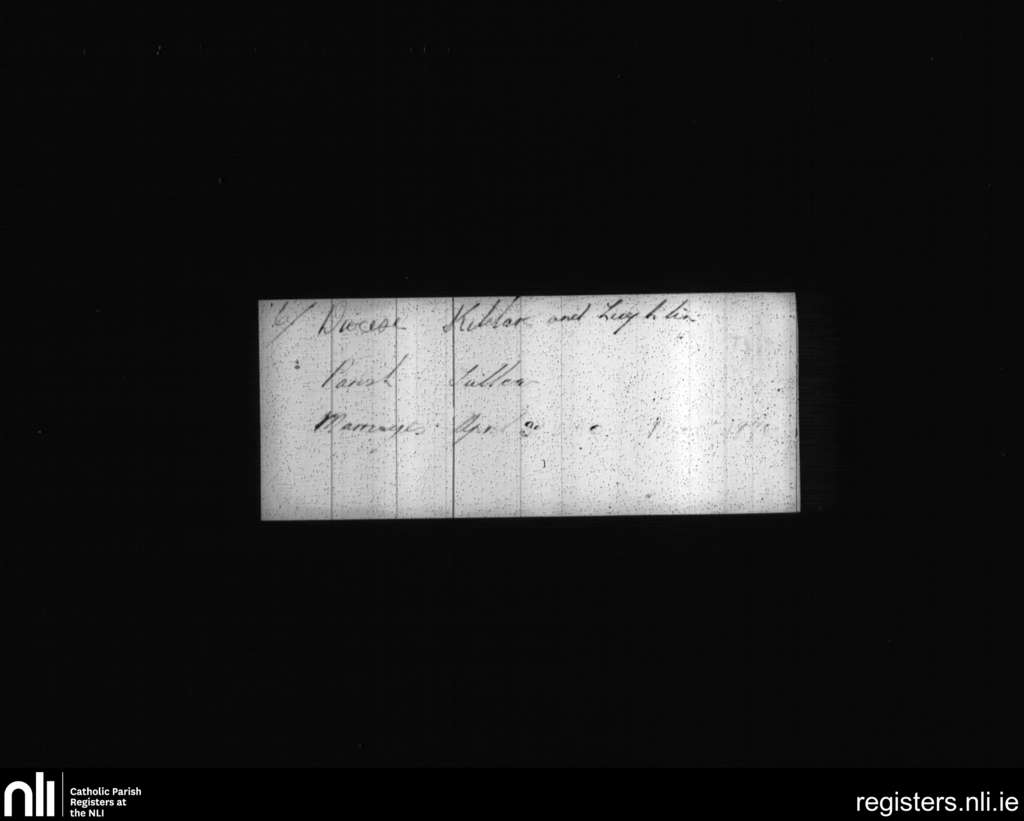 6/ Diocese Kildare and Leighlin
Parish Tullow
Marriages April
nli
Catholic Parish
Registers at
the NLI
registers.nli.ie